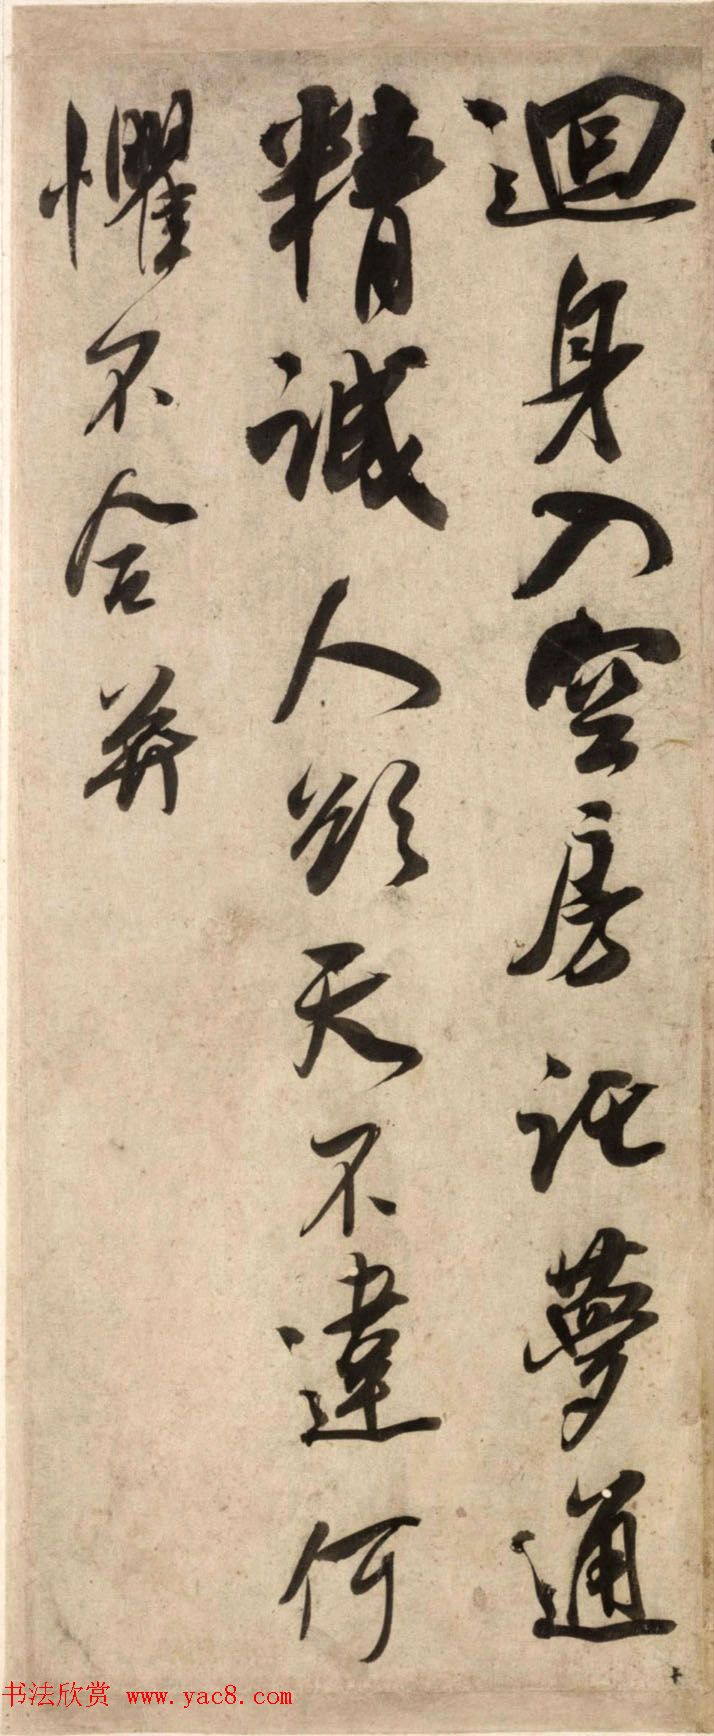 迴身入空房託夢通
精誠人欲天不違何
懼不合并
书法欣赏 www.yac8.com